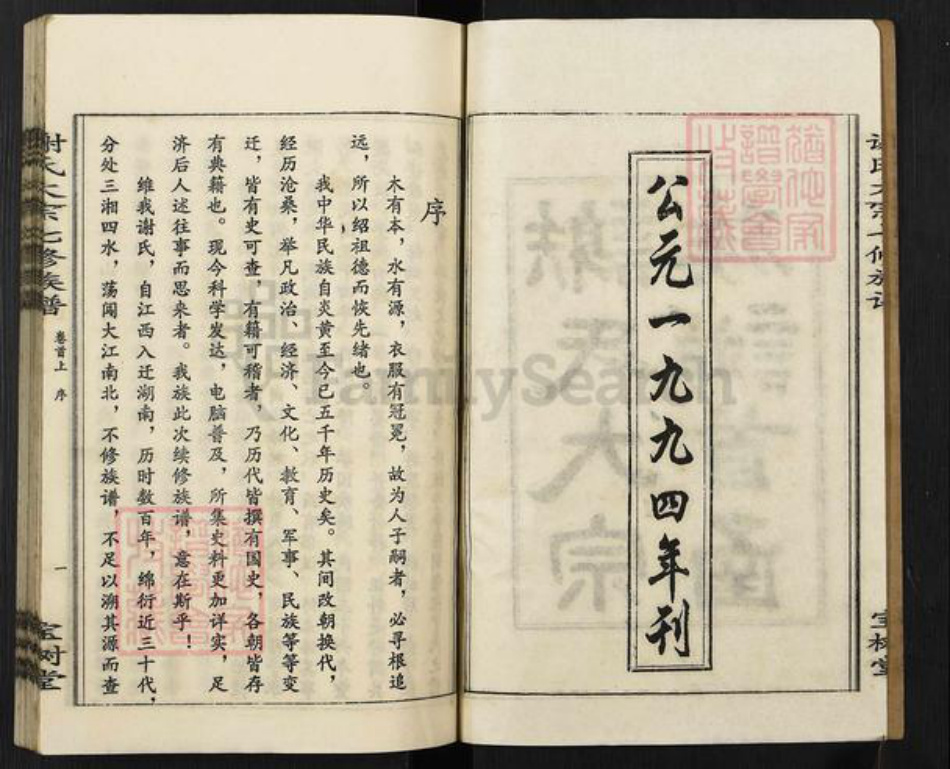 公元一九九四年刊
宝树堂
序
木有本，水有源，衣服有冠冕，故为人子嗣者，必寻根追
远，所以绍祖德而恢先绪也。
我中华民族自炎黄至今已五千年历史矣。其间改朝换代，
经历沧桑，举凡政治、经济、文化、教育、军事、民族等等变
迁，皆有史可查，有籍可稽者，乃历代皆撰有国史，各朝皆存
有典籍也。现今科学发达，电脑普及，所集史料更加详实，足
济后人述往事而思来者。我族此次续修族谱，意在斯乎！
维我谢氏，自江西入迁湖南，历时数百年，绵衍近三十代，
分处三湘四水，荡闯大江南北，不修族谱，不足以溯其源而查
谢氏大宗七修族谱
卷首上 序
一
宝树堂
FamilySearch